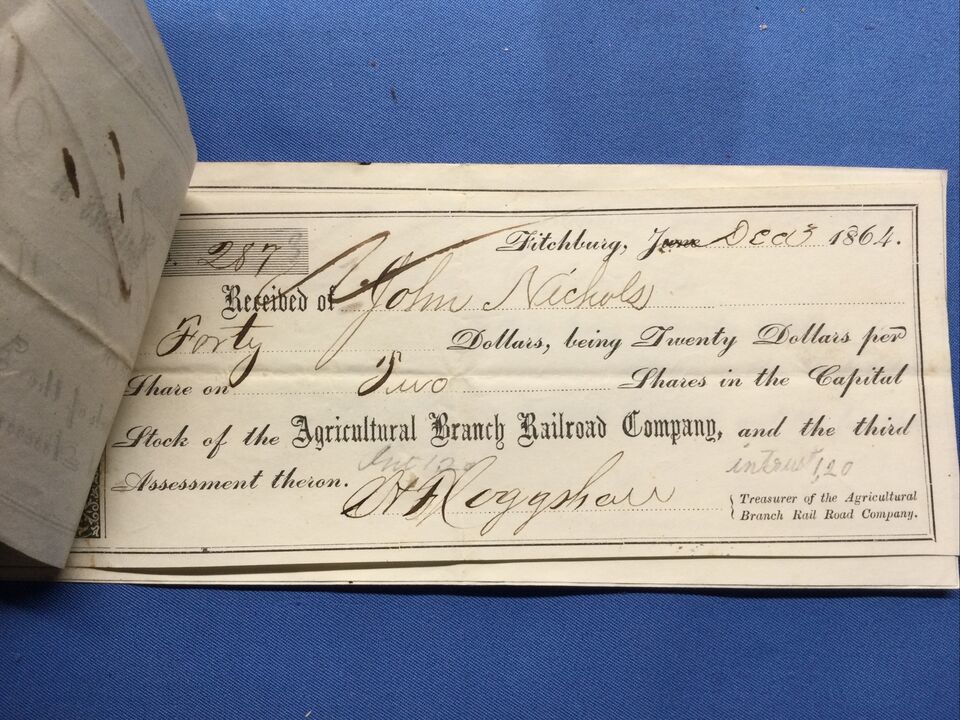 287 Fitchburg, June Dec 3 1864.
Received of John Nichols
Forty Dollars, being Twenty Dollars per
Share on Two Shares in the Capital
Stock of the Agricultural Branch Railroad Company, and the third
Int 1.20 intrust 1,20
Assessment theron.
Treasurer of the Agricultural
Branch Rail Road Company.